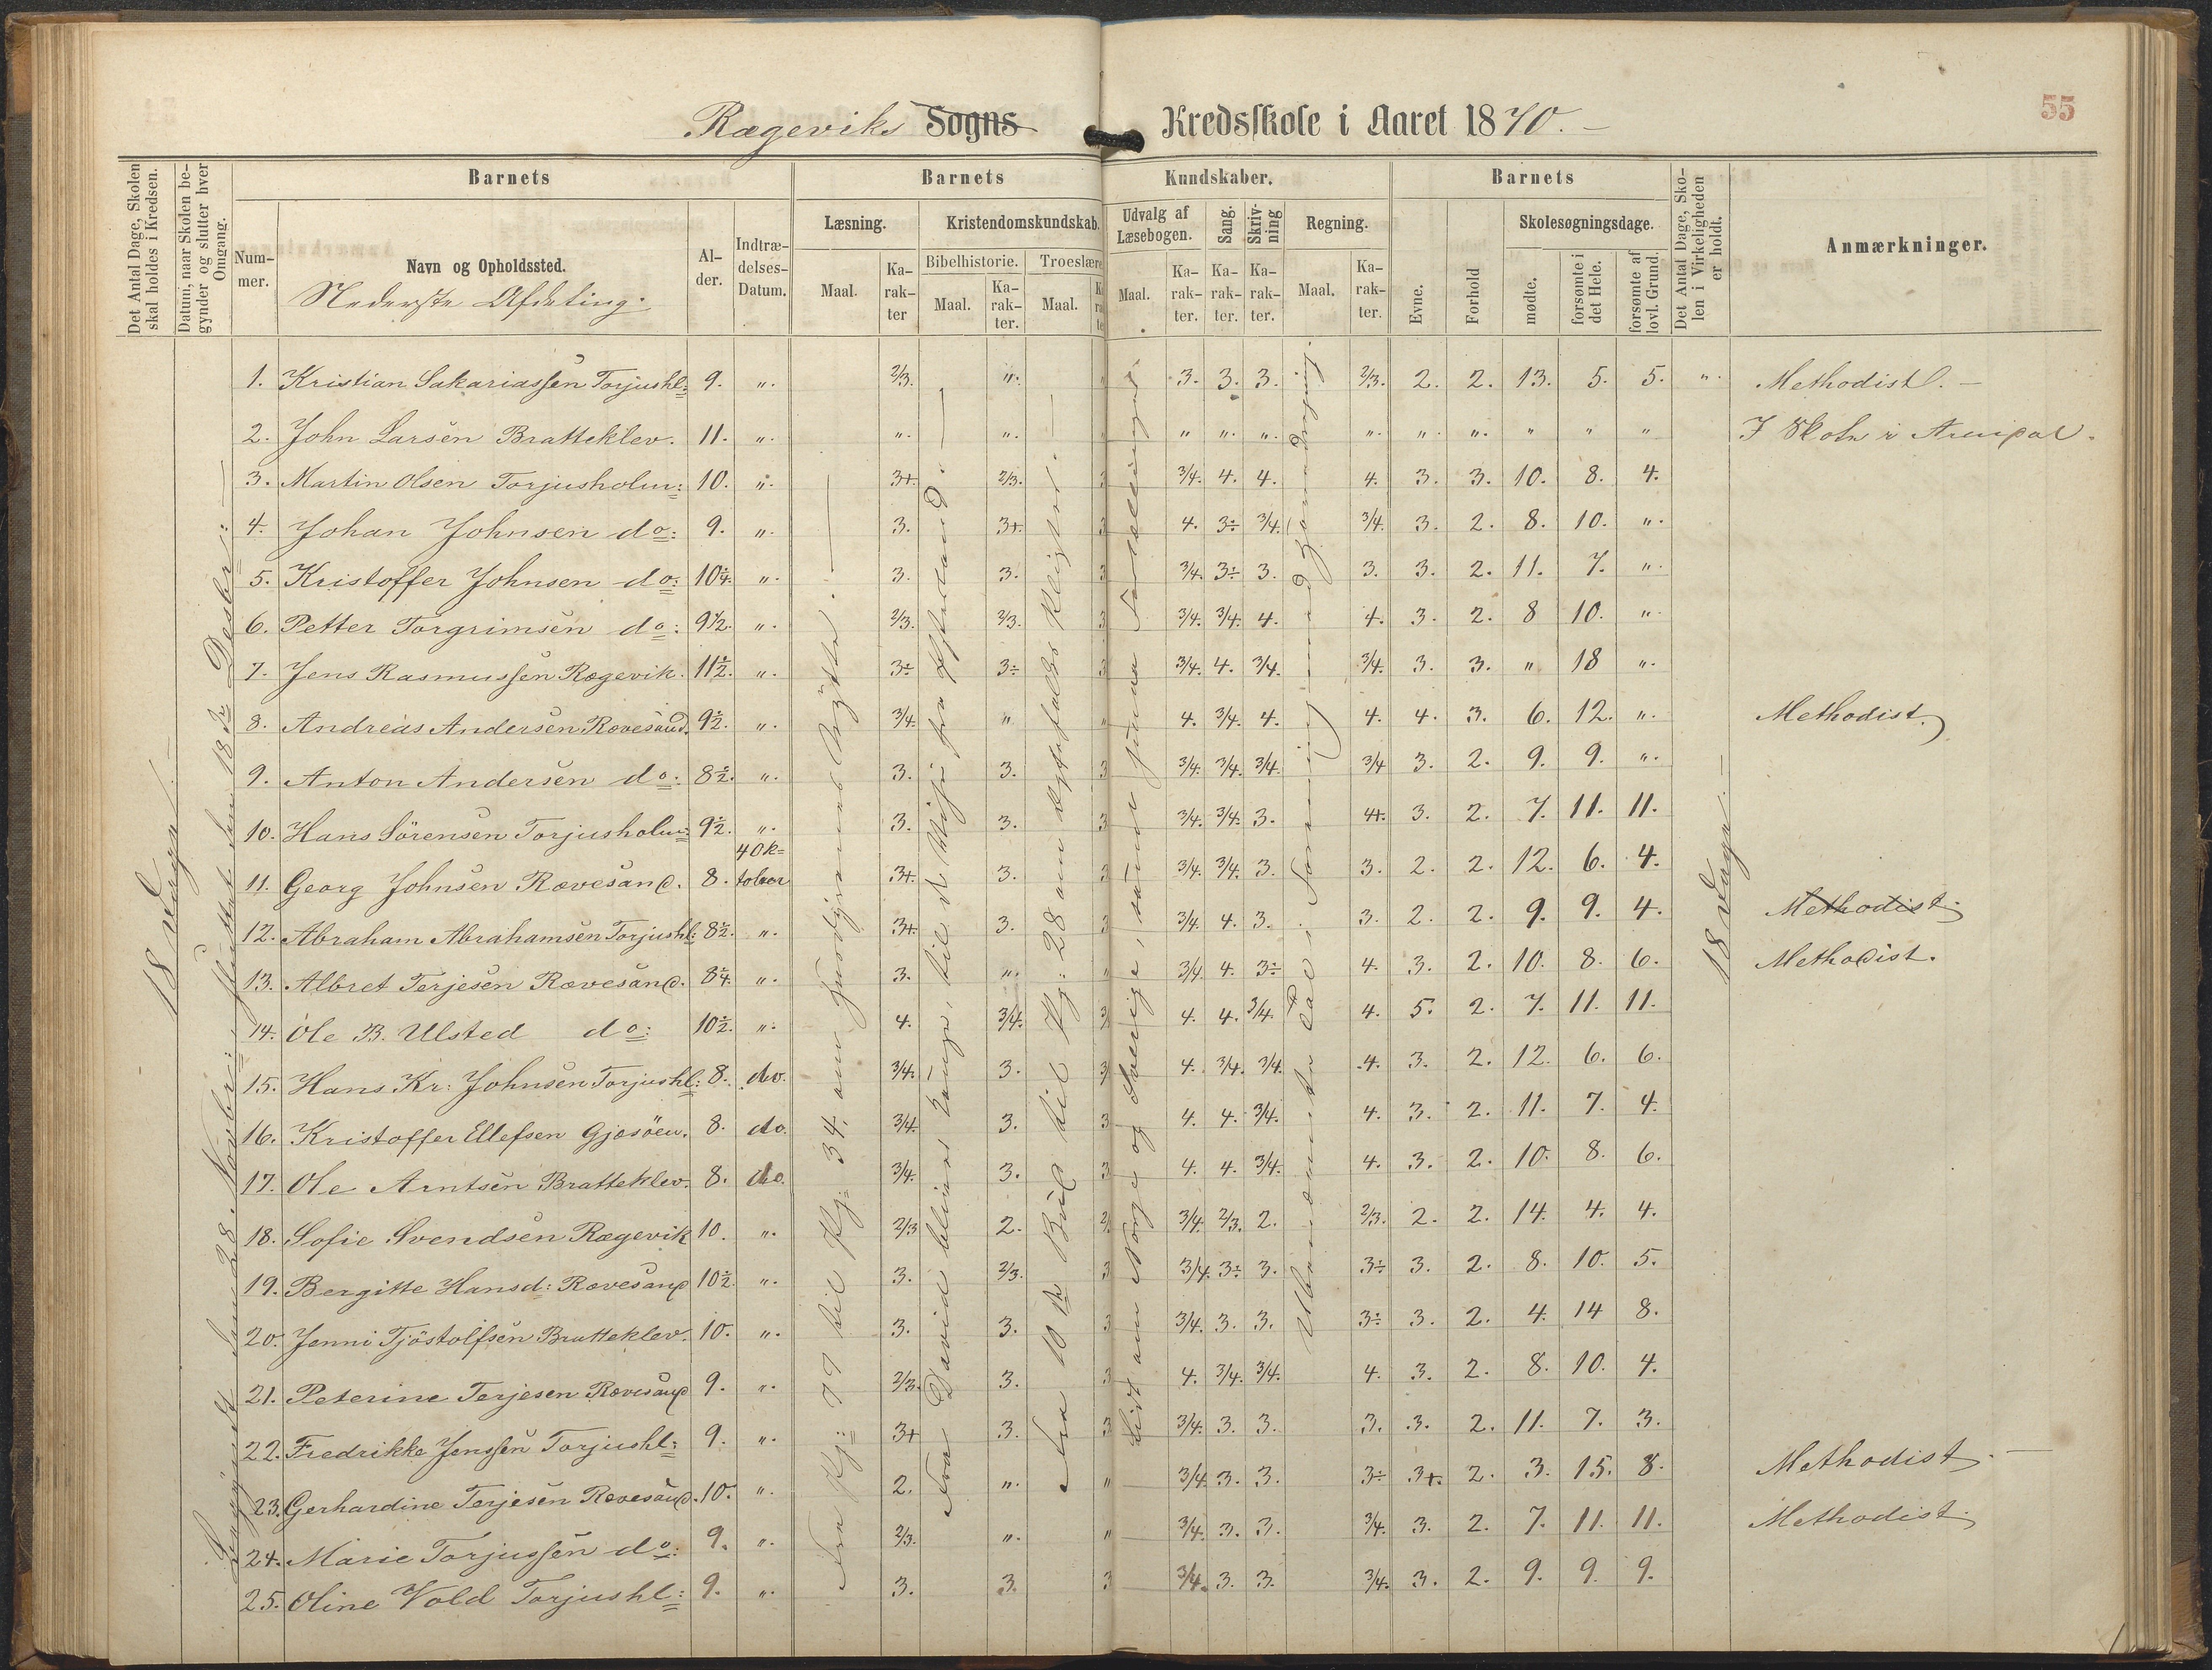 Rægeviks Sogns Kredsskole i Aaret 1870.
55
Det Antal Dage, Skolen skal holdes i Kredsen.
Datum, naar Skolen begynder og slutter hver Omgang.
Barnets
Nummer.
Navn og Opholdssted.
Nederste Afdeling.
Alder.
Indtrædelses-Datum.
Barnets Kundskaber.
Læsning.
Maal.
Karakter
Kristendomskundskab.
Bibelhistorie.
Maal.
Karakter.
Troeslære
Maal.
Udvalg af Læsebogen.
Maal.
Karakter.
Sang.
Karakter.
Skrivning
Karakter.
Regning.
Maal.
Karakter.
Barnets
Evne.
Forhold
Skolesøgningsdage.
mødte.
forsømte i det Hele.
forsømte af lovl. Grund.
Det Antal Dage, Skolen i Virkeligheden er holdt.
Anmærkninger.
18 Dage.
1. Kristian Sakariassen Torjushl: 9. ". 2/3. ". " 3. 3. 3. 2/3. 2. 2. 13. 5. 5. ". Methodist.
2. John Larsen Bratteklev. 11. ". ". ". " " ". ". ". ". ". " " " I Skole i Arendal.
3. Martin Olsen Torjusholm: 10. ". 3+. 2/3. 3 3/4. 4. 4. 4. 3. 3. 10. 8. 4.
4. Johan Johnsen do: 9. ". 3. 3+. 3 4. 3÷ 3/4. 3/4. 3. 2. 8. 10. ".
5. Kristoffer Johnsen do: 10¼. ". 3. 3. 3 3/4. 3÷ 3. 3. 3. 2. 11. 7. ".
6. Petter Torgrimsen do: 9½. ". 2/3. 2/3. 3 3/4. 3/4. 4. 4. 3. 2. 8 10. ".
7. Jens Rasmussen Rægevik. 11½. ". 3÷ 3÷ 3 3/4. 4. 3/4. 3/4. 3. 3. " 18 ".
8. Andreas Andersen Rævesand. 9½. ". 3/4. " " 4. 3/4. 4. 4. 4. 3. 6. 12. ". Methodist.
9. Anton Andersen do: 8½. ". 3. 3. 3 3/4. 3/4. 3/4. 3/4 3. 2. 9. 9. ".
10. Hans Sörensen Torjusholm: 9½. ". 3. 3. 3 3/4. 3/4. 3. 4+. 3. 2. 7. 11. 11.
11. Georg Johnsen Rævesand. 8. 4 Oktober 3+. 3. 3 3/4. 3/4. 3. 3. 2. 2. 12. 6. 4.
12. Abraham Abrahamsen Torjushl: 8½. ". 3+. 3. 3/4. 4. 3. 3. 2. 2. 9. 9. 4. Methodist.
13. Albret Terjesen Rævesand. 8¼. ". 3. ". " 3/4. 4. 3÷ 4. 3. 2. 10. 8. 6. Methodist.
14. Ole B. Ulsted do: 10½. ". 4. 3/4. 3/ 4. 4. 3/4. 4. 5. 2. 7. 11. 11.
15. Hans Kr: Johnsen Torjushl: 8. do. 3/4. 3. 3/ 4. 3/4. 3/4. 4. 3. 2. 12. 6. 6.
16. Kristoffer Ellefsen Gjæsöen. 8. do. 3/4. 3. 3 4. 4. 3/4. 4. 3. 2. 11. 7. 4.
17. Ole Arntsen Bratteklev. 8. do. 3/4. 3. 3 4. 4. 3/4. 4. 3. 2. 10. 8. 6.
18. Sofie Svendsen Rægevik 10. ". 2/3 2. 2/ 3/4. 2/3. 2. 2/3. 2. 2. 14. 4. 4.
19. Bergitte Hansd: Rævesand 10½. ". 3. 2/3. 3 3/4. 3÷ 3. 3÷ 3. 2. 8. 10. 5.
20. Jenni Tjöstolfsen Bratteklev. 10. ". 3. 3. 3 3/4. 3. 3. 3÷ 3. 2. 4. 14 8.
21. Peterine Terjesen Rævesand 9. ". 2/3. 3. 3 4. 3/4. 3/4. 4. 3. 2. 8. 10. 4.
22. Fredrikke Jenssen Torjushl: 9. ". 3+ 3. 3 3/4. 3. 3. 3. 3. 2. 11. 7. 3.
23. Gerhardine Terjesen Rævesand. 10. ". 2. ". " 3/4. 3. 3. 3÷ 3+. 2. 3. 15. 8. Methodist.
24. Marie Torjussen do: 9. ". 2/3. ". " 3/4. 3. 3. 3/4. 3. 2. 7. 11. 11. Methodist.
25. Oline Vold Torjushl: 9. ". 3. 3. 3 3/4. 3. 3. 3/4. 3. 2. 9. 9. 9.
18 Dage.